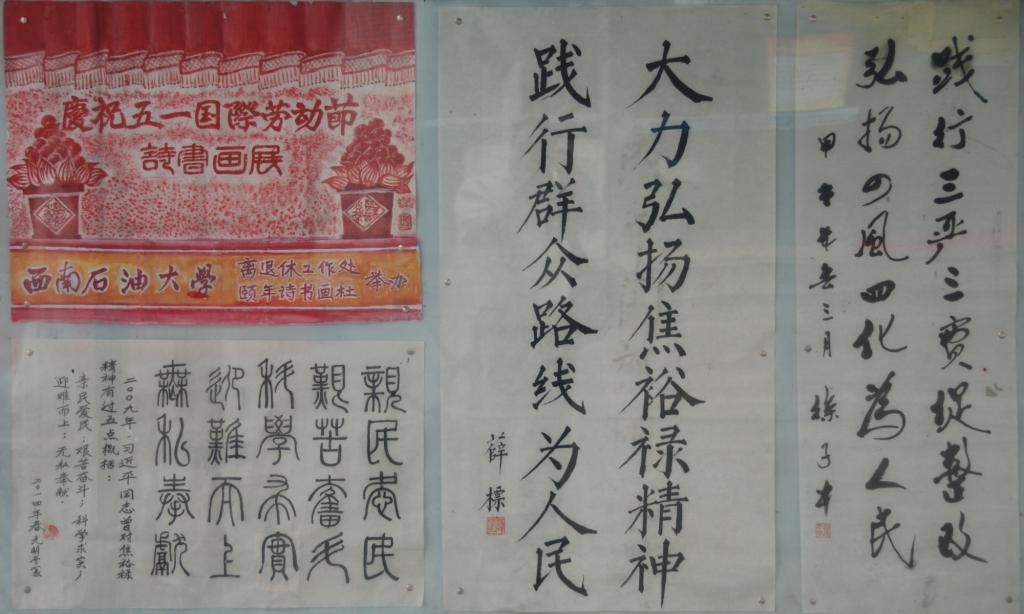 慶祝五一国際劳动節
詩書画展
西南石油大學
离退休工作处
颐年诗书画社
举办
親民愛民
艱苦奮斗
科學求實
迎難而上
無私奉獻
二〇〇九年,习近平同志曾对焦裕禄
精神有过五点概括:
亲民爱民;艰苦奋斗;科学求实;
迎难而上;无私奉献.
二〇一四年春
大力弘扬焦裕禄精神
践行群众路线为人民
薛標
践行三严三實促善政
弘扬風四化為人民
甲午年三月